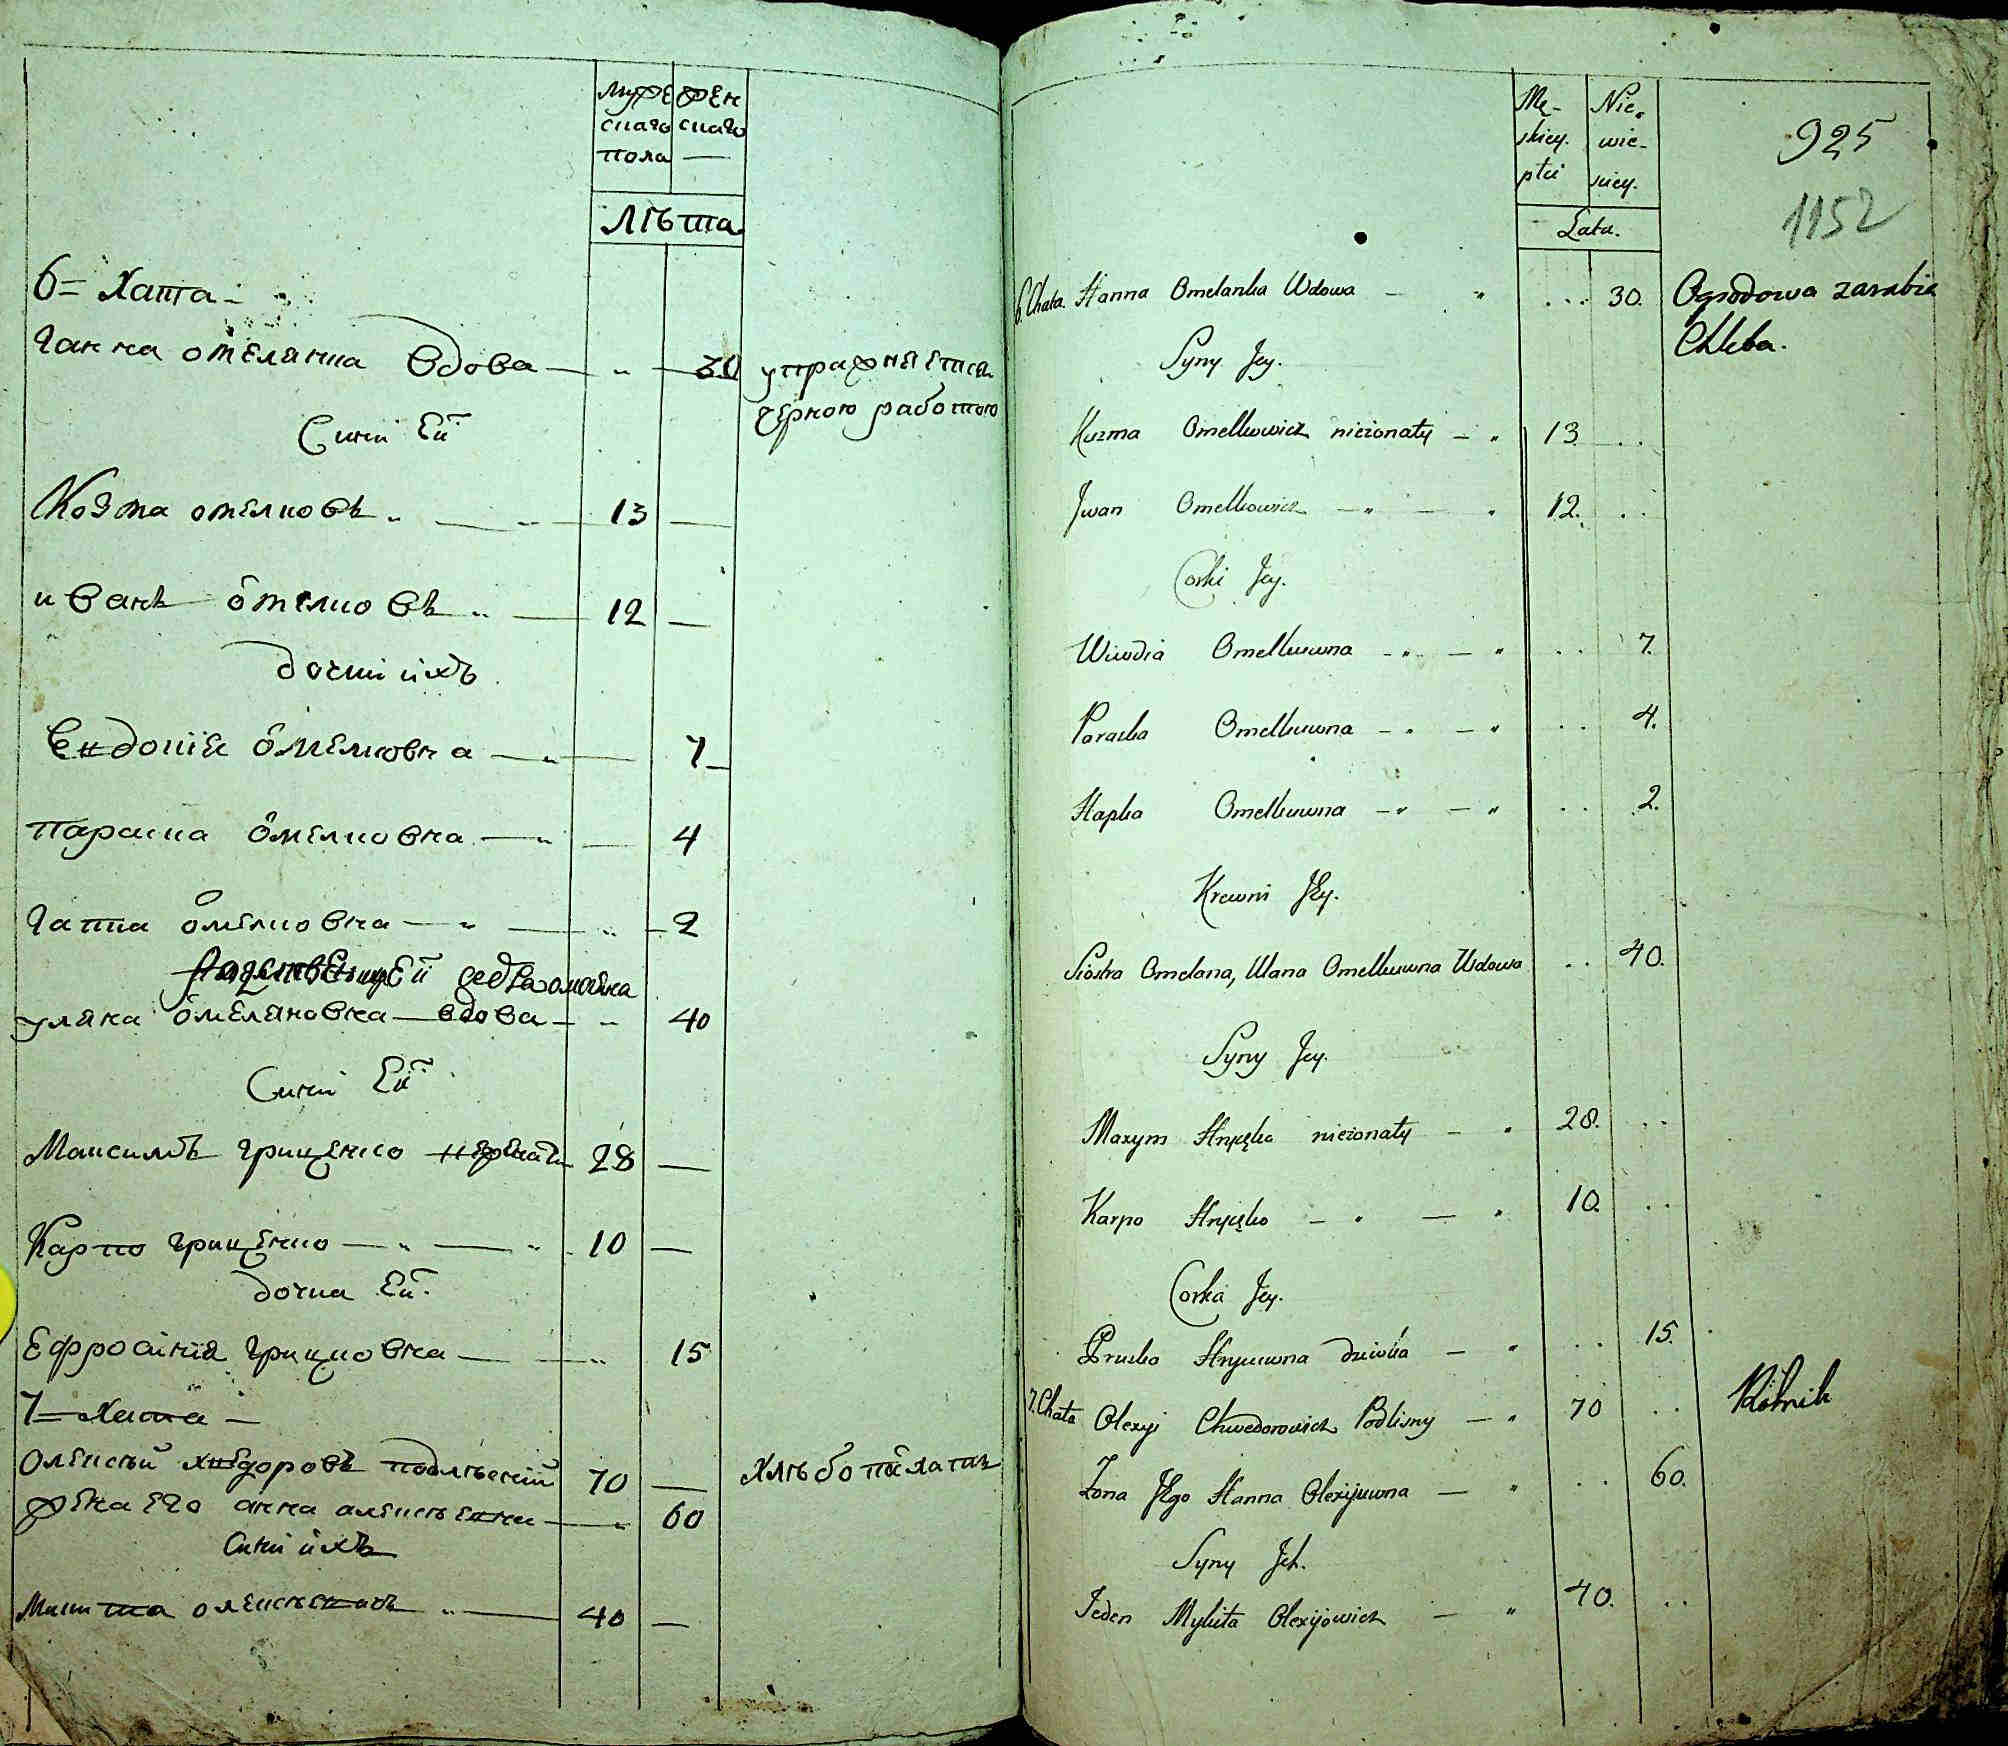 муже
скаго
пола
жен
скаго
—
Лѣта
6= Хата -
Ганна омелянка вдова — „ — 30 упражняется
черною работою
Сини Ей
Козма омелковъ „ — „ — 13 —
иванъ омелковъ „ — 12 —
дочки ихъ
Евдокіе омелковна — „ — 7 —
параска омелковна — „ — 4
гапка омелковна — „ — „ — 2
уляна омеляновна — вдова — „ 40
Сини Ей
Максимъ гриценко нежонатъ 28 —
Карпо гриценко — „ — „ 10 —
дочка Ей.
Ефросинія грицковна — — „ 15
7= хата —
олексѣй хведоровъ подлѣсній 70 — хлѣбопахатнь
жена его анна алексѣевна — „ 60
Сини ихъ
Микита олексѣевичъ „ — 40 —
Mę-
skiey.
płci
Nie-
wie-
skiey.
Lata.
925
1152
6. Chata. Hanna Omelanka Wdowa — „ ... 30. Ogrodowa zarabia
Chleba.
Syny Jey.
Kuzma Omelkowicz nieżonaty — „ 13 ..
Jwan Omelkowicz — „ — „ 12. ..
Corki Jey.
Wiwdia Omelkuwna — „ — „ .. 7.
Paraska Omelkuwna — „ — „ .. 4.
Hapka Omelkuwna — „ — „ .. 2.
Krewni JEy.
Siostra Omelana, Ulana Omelkuwna Wdowa .. 40.
Syny Jey.
Maxym Hryćko nieżonaty — „ 28. ..
Karpo Hryćko — „ — „ 10. ..
Corka Jey.
Pruska Hrycuwna dziwka — „ .. 15.
7. Chata Olexyj Chwedorowicz Podlisny — „ 70 .. Rolnik
Żona JEgo Hanna Olexijuwna — „ .. 60.
Syny Jch.
Jeden Mykita Olexijowicz — „ 40. ..